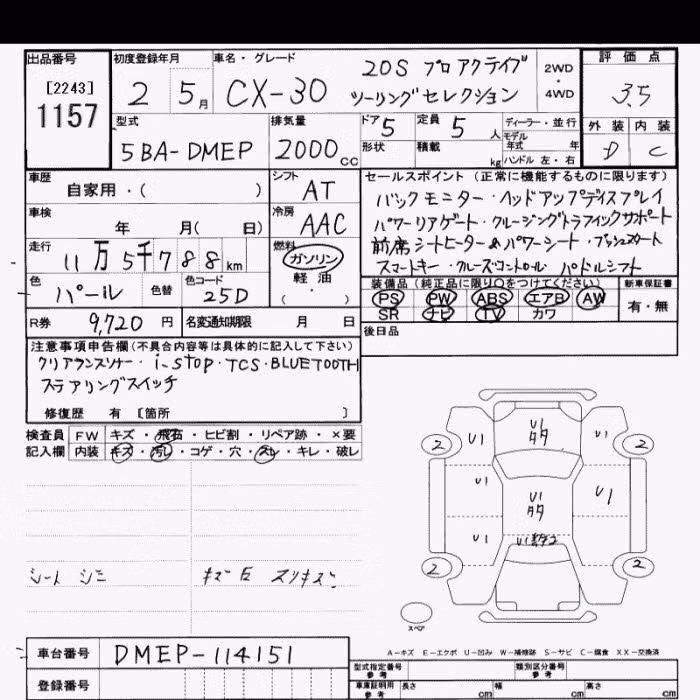 出品番号
[2243]
1157
初度登録年月
2 5月
車名・グレード
CX-30 20S プロアクティブ
ツーリングセレクション
2WD
・
4WD
評価点
3.5
型式
5BA-DMEP
排気量
2000cc
ドア 5
形状
定員 5 人
積載 kg
ディーラー・並行
モデル
年式 年
ハンドル 左・右
外装 内装
D C
車歴
自家用・( )
シフト
AT
車検
年 月( 日)
冷房
AAC
走行
11万5千788km
燃料
ガソリン
軽油
( ・ )
色
パール
色替
色コード
25D
R券 9,720 円
名変通知期限 月 日
セールスポイント(正常に機能するものに限ります)
バックモニター・ヘッドアップディスプレイ
パワーリアゲート・クルージングトラフィックサポート
前席シートヒーター&パワーシート・プッシュスタート
スマートキー・クルーズコントロール パドルシフト
装備品(純正品に限り○をつけてください)
PS PW ABS エアB AW
SR ナビ TV カワ
新車保証書
有・無
後日品
注意事項申告欄(不具合内容等は具体的に記入して下さい)
クリアランスソナー・i-stop・TCS・BLUETOOTH
ステアリングスイッチ
修復歴 有 [箇所 ]
検査員
記入欄
FW キズ・飛石・ヒビ割・リペア跡・×要
内装 キズ・汚れ・コゲ・穴・スレ・キレ・破レ
シート シミ
U1
タタ
2
U1
U1
2
U1
U1
タタ
U1
U1
2
2
スペア
A-キズ E-エクボ U-凹み W-補修跡 S-サビ C-腐食 XX-交換済
車台番号 DMEP-114151
登録番号
型式指定番号
参考
類別区分番号
参考
車庫証明用
参考
長さ cm
幅 cm
高さ cm